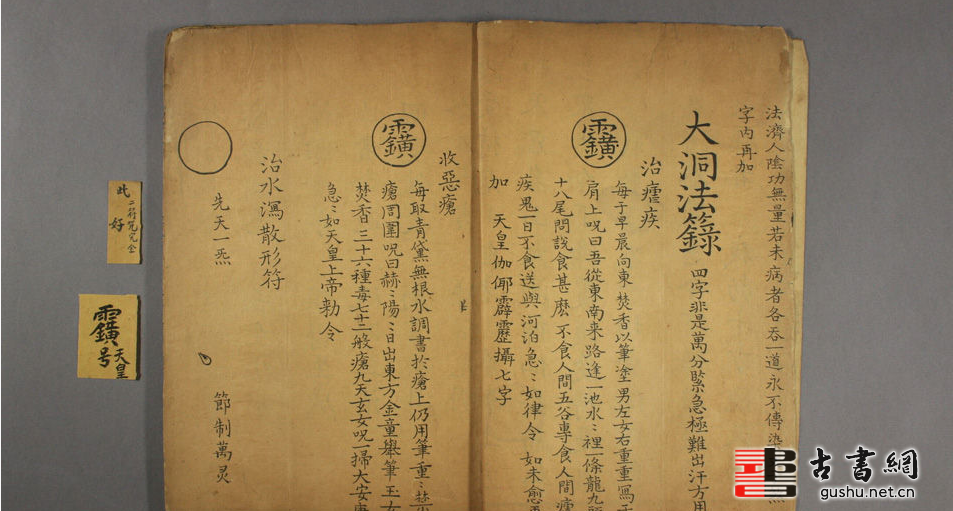 法濟人陰功無量若未病者各吞一道永不傳染
字內再加
大洞法籙 四字非是萬分緊急極難出汗方用
治瘧疾
每于早晨向東焚香以筆塗男左女右重重寫于
肩上咒曰吾從東南来路逢一池水〻裡一條龍九頭
十八尾問說食甚麽不食人間五谷專食人間瘧
疾鬼一日不食送與河泊急〻如律令 如未愈再
加 天皇伽倻霹靂攝七字
收惡瘡
每取青黛無根水調書於瘡上仍用筆一重〻
瘡周圍咒曰赫〻陽〻日出東方金童舉筆玉女
焚香三十六種毒七十二般瘡九天玄女咒一掃大安康
急〻如天皇上帝勅令
治水瀉散形符
先天一炁
節制萬灵
此二符咒完全
好
天皇
号
古書網
gushu.net.cn